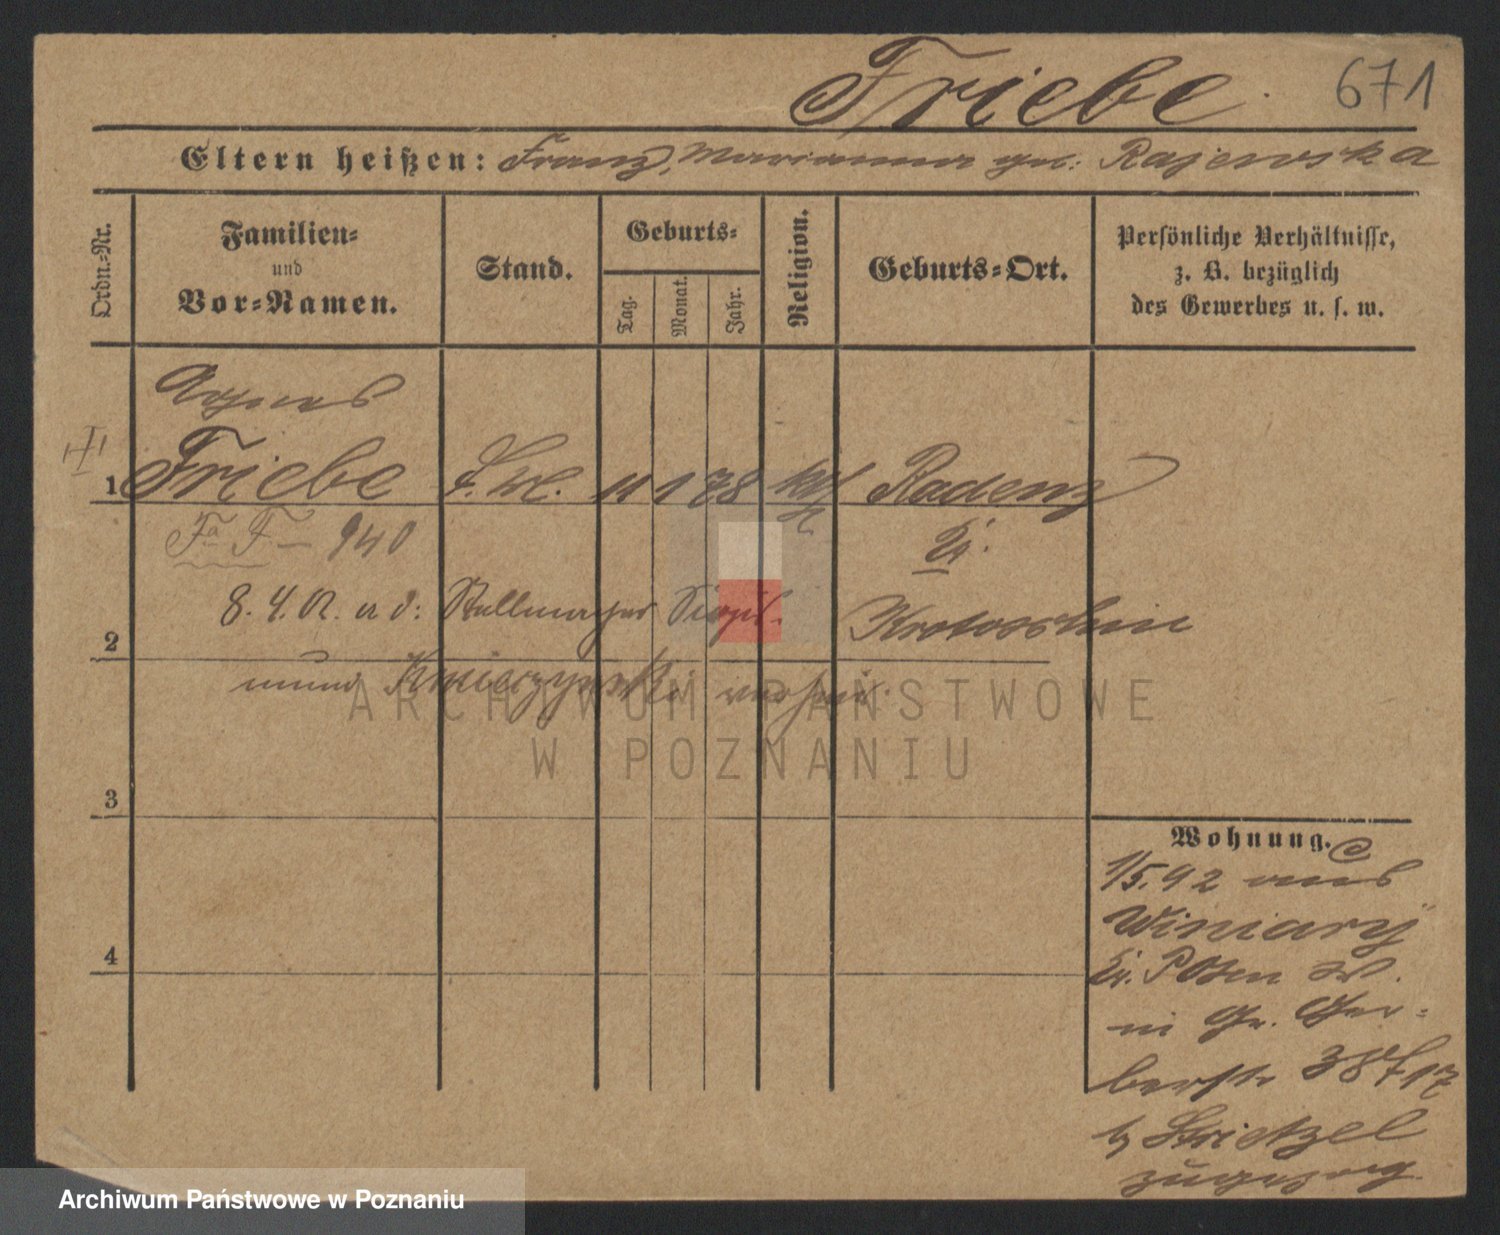 Friebe. 671
Eltern heißen: Franz, Marianna geb. Rajewska
Ordn.-Nr.
Familien-
und
Vor-Namen.
Stand.
Geburts-
Tag.
Monat.
Jahr.
Religion.
Geburts-Ort.
Persönliche Verhältnisse,
z. B. bezüglich
des Gewerbes u. s. w.
Agnes
1 Friebe 11 1 78 kath Radenz
Fa F — 940 Kr.
2 8. 4. 02. a d: Stellmacher Krotoschin
ARCHIWUM PAŃSTWOWE
W POZNANIU
3
Wohnung.
1/5.92 aus
Winiary
4 Kr. Posen
in Gr. Ger-
berstr 38 17
b Strietzel
zugezog
Archiwum Państwowe w Poznaniu